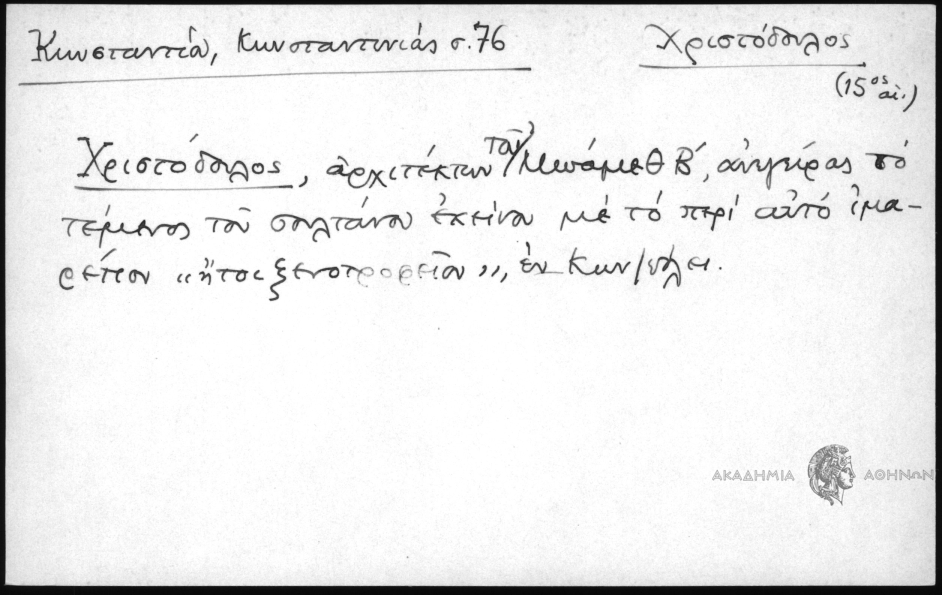 Κωνσταντία, Κωνσταντινιάς σ. 76 Χριστόδουλος
(15ος αἰ.)
Χριστόδουλος, ἀρχιτέκτων τοῦ Μωάμεθ Β΄, ἀνεγείρας τό
τέμενος τοῦ σουλτάνου ἐκείνου μέ τό περί αὐτό ἰμα-
ρέτιον «ἤτοι ξενοτροφεῖον», ἐν Κων/πόλει.
ΑΚΑΔΗΜΙΑ ΑΘΗΝΩΝ